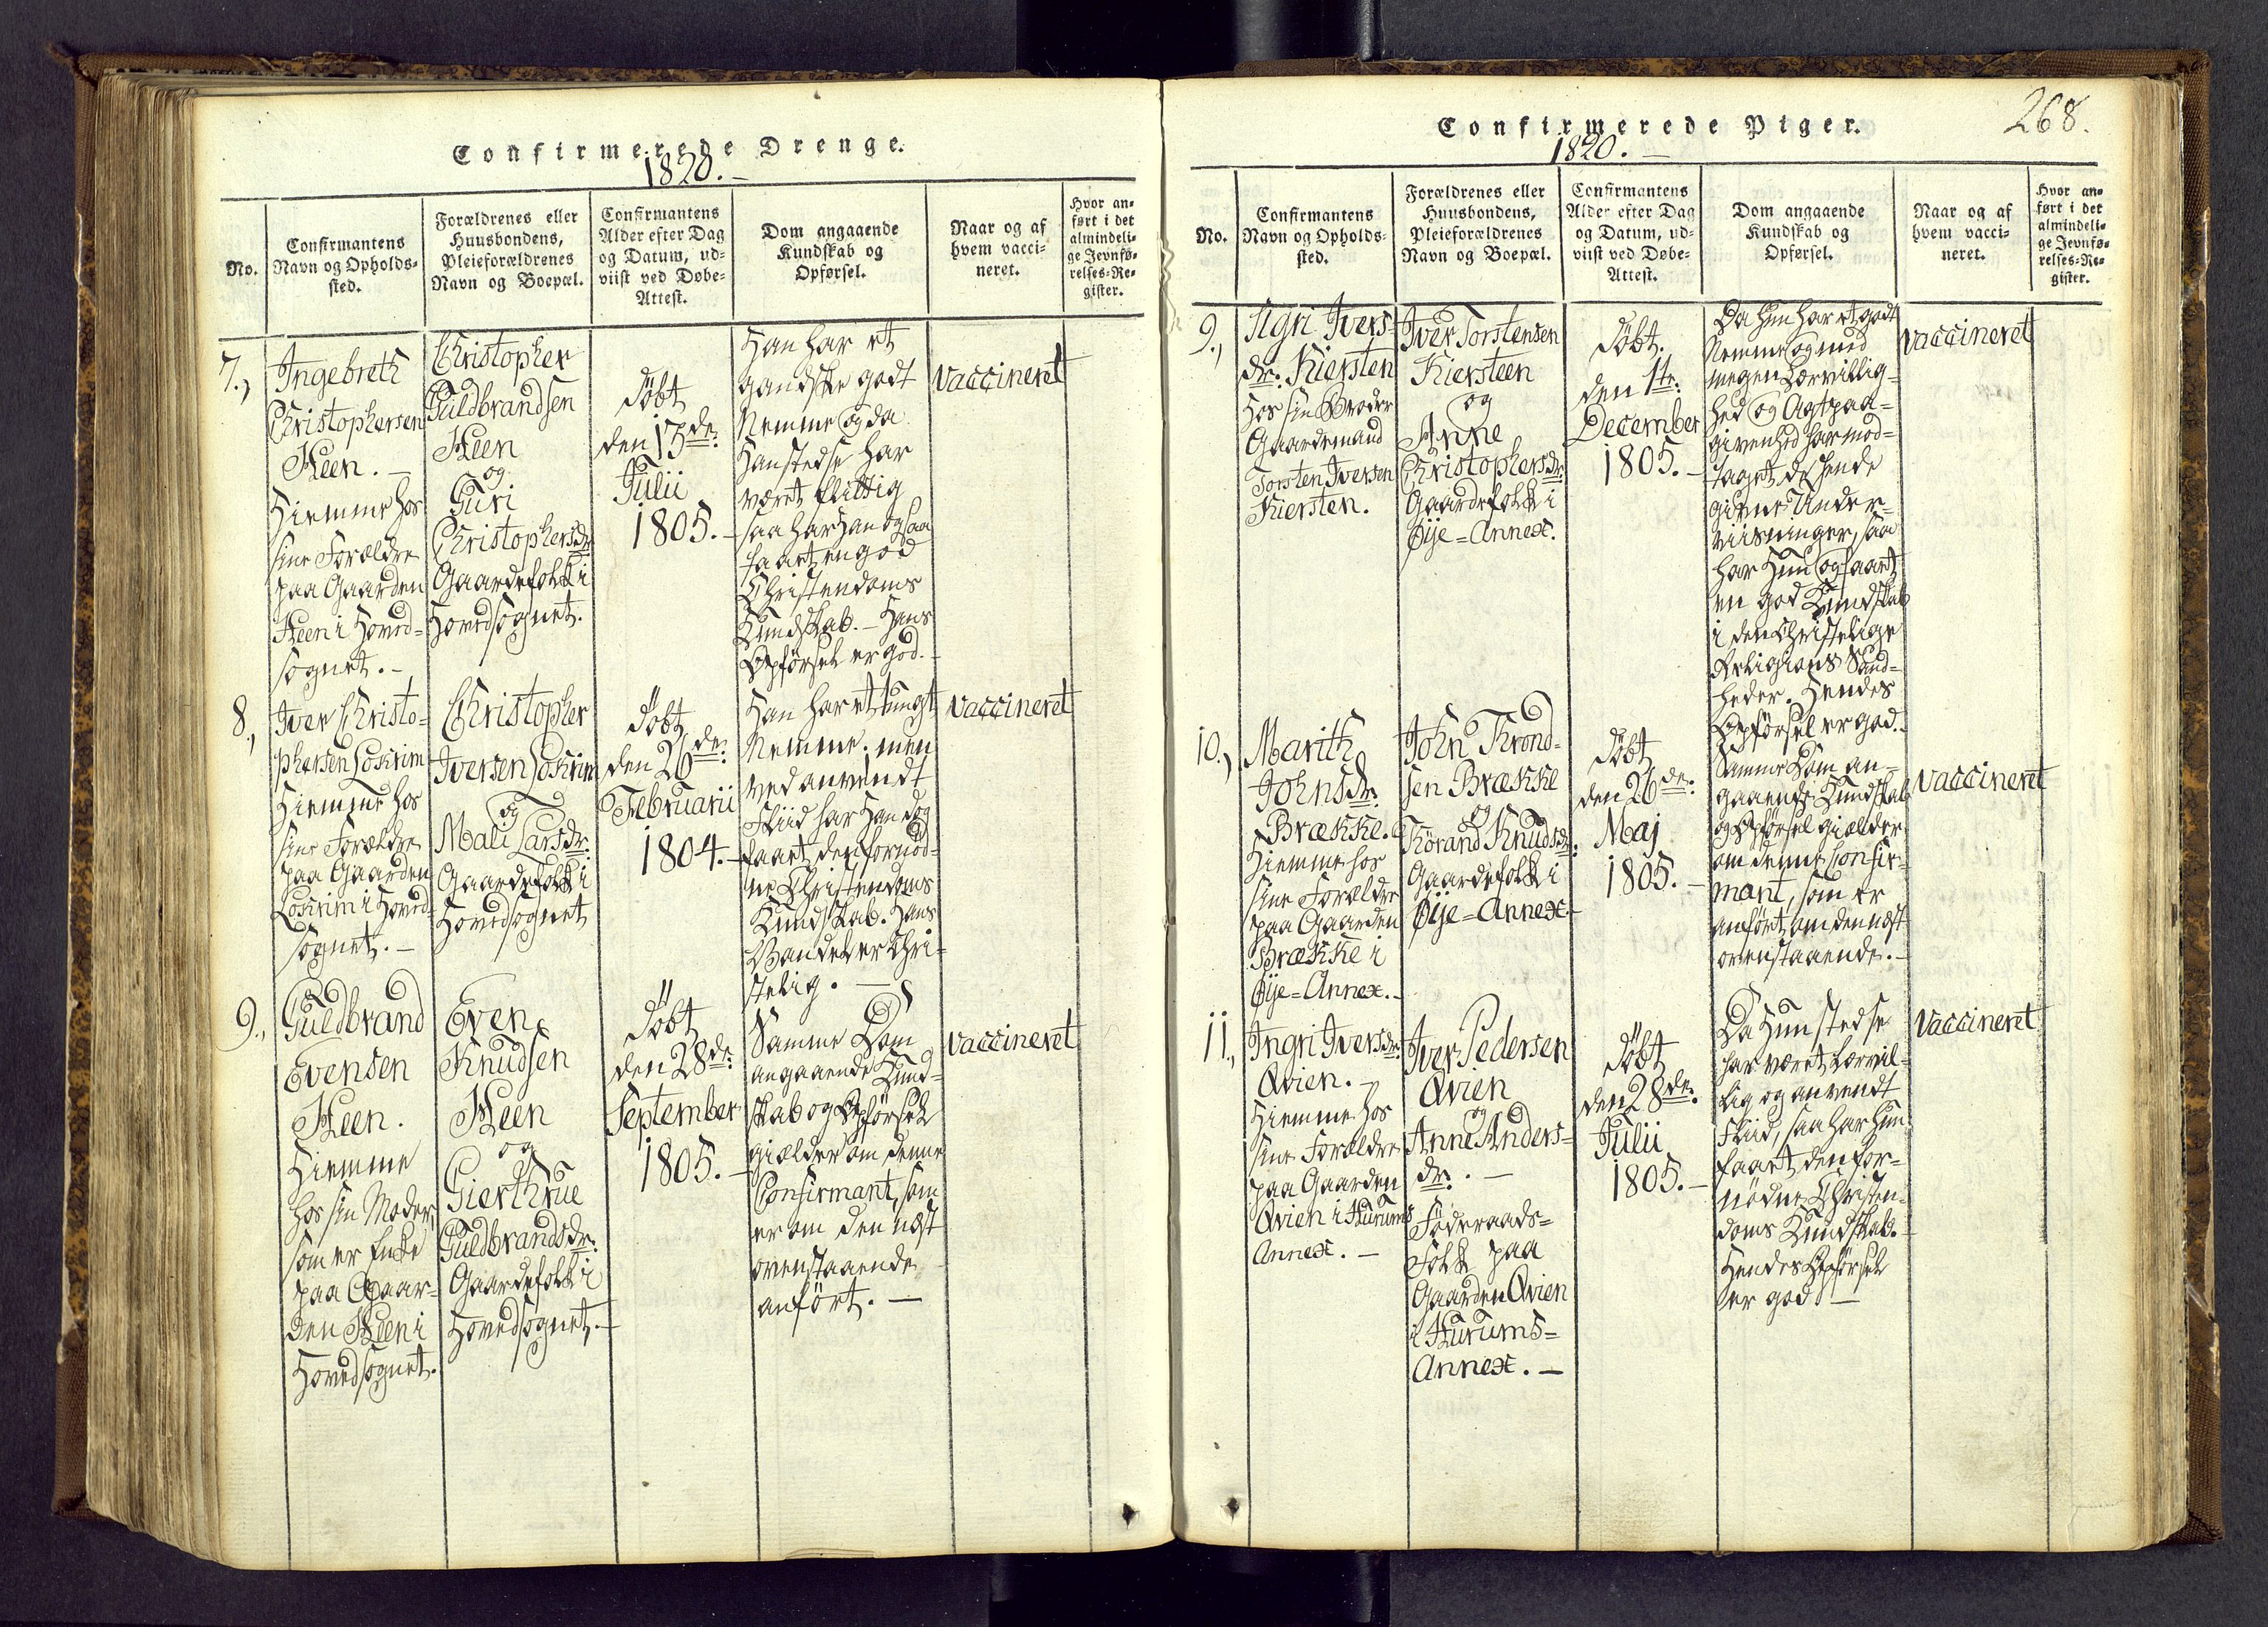 Confirmerede Drenge.
1820. –
No.
Confirmantens
Navn og Opholds-
sted.
Forældrenes eller
Huusbondens,
Pleieforældrenes
Navn og Boepæl.
Confirmantens
Alder efter Dag
og Datum, ud-
viist ved Døbe-
Attest.
Dom angaaende
Kundskab og
Opførsel.
Naar og af
hvem vacci-
neret.
Hvor an-
ført i det
almindeli-
ge Jevnfø-
relses-Re-
gister.
7.,
Ingebreth
Christophersen
Heen. –
Hiemme hos
sine Forældre
paa Gaarden
Heen i Hoved-
sognet. –
Christopher
Guldbrandsen
Heen
og
Guri
Christophersdr.
Gaardefolk i
Hovedsognet.
Døbt
den 13de
Julii
1805. –
Han har et
gandske godt
Nemme og da
Han stedse har
været flittig
saa har Han ogsaa
faaet en god
Christendoms
Kundskab. – Hans
Opførsel er god. –
Vaccineret
8.,
Iver Christo-
phersen Loskrim
Hiemme hos
sine Forældre
paa Gaarden
Loskrim i Hoved-
sognet. –
Christopher
Iversen Loskrim
og
Mali Larsdr.
Gaardefolk i
Hovedsognet
Døbt
den 26de
Februarii
1804. –
Han har et tungt
Nemme. men
ved anvendt
Fliid har Han dog
faaet den fornød-
ne Christendoms
Kundskab. Hans
Vandel er Chri-
stelig. –
Vaccineret
9.,
Guldbrand
Evensen
Heen.
Hiemme
hos sin Moder
som er Enke
paa Gaar-
den Heen i
Hovedsognet.
Even
Knudsen
Heen
og
Gierthrue
Guldbrandsdr.
Gaardefolk i
Hovedsognet. –
Døbt
den 28de
September
1805. –
Samme Dom
angaaende Kund-
skab og Opførsel
gielder om denne
Confirmant, som
er om den næst
ovenstaaende
anført. –
Vaccineret
Confirmerede Piger.
268.
1820. –
No.
Confirmantens
Navn og Opholds-
sted.
Forældrenes eller
Huusbondens,
Pleieforældrenes
Navn og Boepæl.
Confirmantens
Alder efter Dag
og Datum, ud-
viist ved Døbe-
Attest.
Dom angaaende
Kundskab og
Opførsel.
Naar og af
hvem vacci-
neret.
Hvor an-
ført i det
almindeli-
ge Jevnfø-
relses-Re-
gister.
9.,
Sigri Ivers-
dr. Kiersten
hos sin Broder
Gaardemand
Torsten Iversen
Kiersten.
Iver Torstensen
Kiersteen
og
Anne
Christophersdr.
Gaardefolk i
Øije=Annex.
Døbt.
den 1te
December
1805. –
Da Hun har et godt
Nemme og med
megen Lærvillig-
hed og Agtpaa-
givenhed har mod-
taget de hende
givne Under-
viisninger, saa
har Hun og faaet
en god Kundskab
i den Christelige
Religions Sand-
heder. Hendes
Opførsel er god.
Vaccineret
10.,
Marith
Johnsdr.
Brække.
Hiemme hos
sine Forældre
paa Gaarden
Brække i
Øije=Annex. –
John Trond-
sen Brække
og
Tørand Knudsdr.
Gaardefolk i
Øije=Annex. –
Døbt
den 26de
Maj
1805. –
Samme Dom an-
gaaende Kundskab
og Opførsel gielder
om denne Confir-
mant, som er
anført om den næst
ovenstaaende. –
Vaccineret
11.,
Ingri Iversdr.
Qvien. –
Hiemme hos
sine Forældre
paa Gaarden
Qvien i Hurums
Annex. –
Iver Pedersen
Qvien
og
Anne Anders-
dr. –
Føderaads-
Folk paa
Gaarden Qvien
i Hurums=
Annex. –
Døbt
den 28de
Julii
1805. –
Da Hun stedse
har været Lærvil-
lig og anvendt
Fliid, saa har Hun
faaet den for-
nødne Christen-
doms Kundskab. –
Hendes Opførsel
er god –
Vaccineret